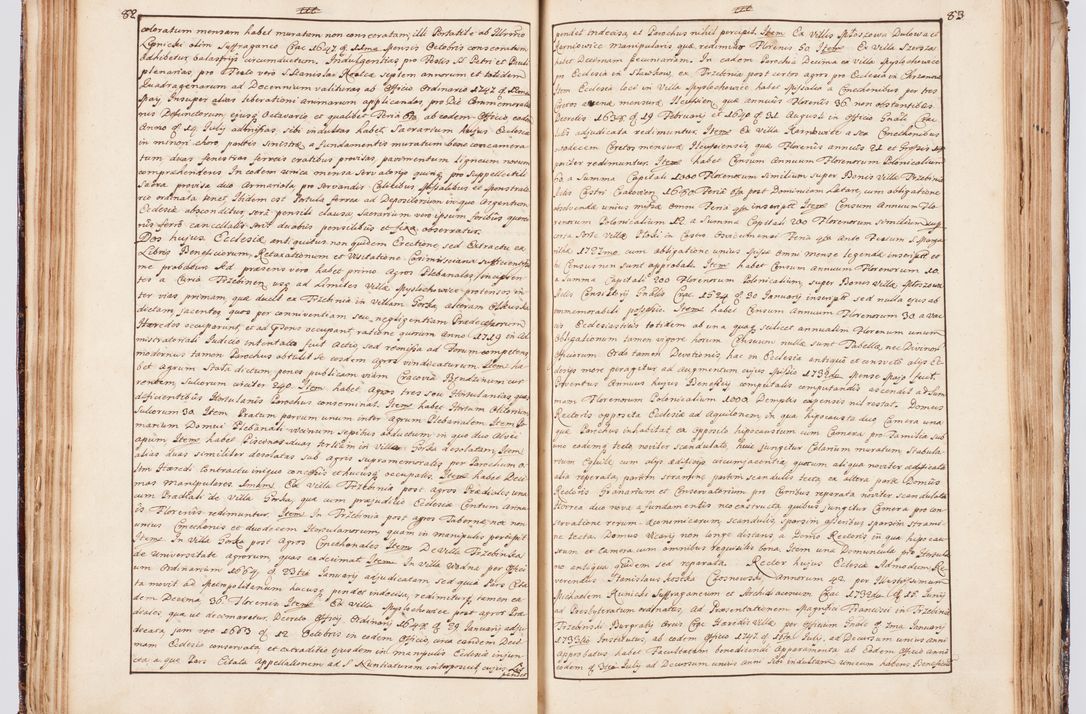 82
coloratum mensam habet muratam non consecratam, illi Portatile ab Illmo
Lipnicki olim Suffraganeo Crac 1647 Mensis Octobris consecratum
adhibetur balastrijs circumductum. Indulgentias pro Festis S. Petri et Pauli
plenarias, pro Festo vero S. Stanislai Kostka septem annorum et totidem
Quadragenarum ad Decennium valituras ab Officio Ordinario 1742
May Insuper alias liberationi animarum applicandas pro Die Commemorationis
nis Defunctorum ejusq Octavario et qualibet Feria ab eodem Officio eodem
Anno 19 July admissas sibi indultas habet. Sacrarium hujus Ecclesiæ
in minori choro partis sinistræ a fundamentis muratum bene concamera-
tum duas fenestras ferreis cratibus provisas, pavimentum ligneum novum
comprehendens In eodem unica mensa servatorijs pro suppellectili
Sacra provisa duo Armariola pro servandis Calicibus et Monstran
rio ordinata tenet Ibidem est Portula ferrea ad Depositorium in quo Argentum
Ecclesiæ absconditur, seris pensili clausa, Sacrarium vero ipsum foribus
ferro cancellatis seris duabus pensilibus et fixa observatur.
Dos hujus Ecclesiæ antiquitus non quidem Erectione sed Extractu ex
Libris Beneficiorum, Retaxationum et Visitatione Casimirsciana sufficienti
me probatam Ad præsens vero habet primo Agros Plebanales
tes a Curia Trzebinen usq ad limites Villæ Myslachowice protensos in
ter vias primam quæ ducit ex Trzebinia in Villam Gorka, alteram Olkuska
dictam, jacentes, quos per conniventiam seu negligentiam Prædecessorum
Hæredes occuparunt, et ad Præsens occupant ratione quorum anno 1719 in Ad
ministratoriali Judicio intentata fuit Actio, sed remissa ad Forum competens,
modernus tamen Parochus obtulit se eosdem agros vindicaturum Item ha
bet agrum Stara dictum penes publicam viam Cracovia Bendzinum cur
rentem, Sulcorum circiter 240. Item habet Agros tres seu Hortulanias quas
deficientibus Hortulanis Parochus conseminat. Item habet Hortum
Sulcorum 30 Item Pratum parvum unum inter Agrum Plebanalem Item Po
marium Domui Plebanali vicinum sepibus obductum in quo duo Alvei
apum Item habet Piscinas duas tertiam in Villa Gorka desolatam, Item
alias duas similiter desolatas sub agris supramemoratis, per Parochum o
lim Hæredi Contractu iniquo concessas et hucusq occupatas. Item habet Deci
mas Manipulares Imam Ex Villa Trzebinia post agros Prædiales una
cum Prædiali de Villa Gorka, quæ cum præjudicio Ecclesiæ Centum Anna
is Florenis redimuntur. Item In Trzebinia post agros Tabernæ nec non
unius Cmethonis et duodecem Hortulanorum, quam in manipulis percipit
Item In Villa Gorka post Agros Cmethonales Item De Villa Trzebinska
de Universitate agrorum, quas ex decimat Item In Villa Wodna per Offici
um Ordinarium 1664 23tia January adjudicatam, sed quia Pars Cita
ta movit ad Metropolitanum hucusq pendet indecisa, redimitur tamen ea
dem Decima, 36 Florenis Item Ex Villa Myslachowice post agros Præ
diales, quæ ut decometur Decreto Officij Ordinarij 1648 29 January adju
dicata, jam vero 1663 12 Octobris in eodem Officio, circa eandem Deci
mam Ecclesia conservata, et extraditio ejusdem in manipulis Ecclesiæ injun
cta, a qua Pars Citata Appellationem ad S. Nuntiaturam interposuit, cujus Lis
pendet
83
pendet indecisa, et Parochus nihil percipit. Item Ex Villis Mloszowa Dulowa et
Karniowice manipulares quæ redimitur Florenis 50 Item Ex Villa Siersza
habet Decimam pecuniariam. In eadem Parochia Decima ex Villa Myslachowice
pro Ecclesia in Staschow, ex Trzebinia post certos agros pro Ecclesia in Chrzanow
Item Ecclesia loci in Villa Myslachowice habet Missalia a Cmethonibus per tres
Coretos avena mensuræ Ilkusien, quæ annuis Florenis 36 non obstantibus
Decretis 1638 19 February et 1640 31 Augusti in Officio Gnali Crac
latis adjudicata redimuntur. Item Ex Villa Karniowice a sex Cmethonibus
duodecem Coretos mensuræ Ilkusiensis, quæ Florenis annuis 21 et Grossis
pariter redimuntur Item habet Censum Annuum Florenorum Polonicalium
60 a Summa Capitali 1000 Florenorum Similium super Bonis Villæ Trzebinia
Actis Castri Cracovien 1650 Feria 6ta post Dominicam Lætare, cum obligatione
absolvenda unius missæ omni Feria 6ta inscripti Item Censum Annuum Flo
renorum Polonicalium 12 a Summa Capitali 200 Florenorum similium
corsa Sorte Villæ Ploki in Castro Oswiecimensi Feria 4ta Ante Festum S. Marga
rithæ 1727mo cum obligatione unius Missæ omni mense legenda inscripti et
hi Census non sunt approbati. Item habet Censum Annuum Florenorum 10
a Summa Capitali 200 Florenorum Polonicalium, super Bonis Villa Mloszowa
Actis Consistorij Gnalis Crac 1524 30 January inscripti sed nulla ejus ab
immemorabili possessio. Item habet Censum Annuum Florenorum 30 a vac
cis Ecclesiasticis totidem ab una quaq scilicet annuatim Florenum unum,
Obligationum tamen vigore horum Censuum nulla sunt Tabella, nec Divinorum
Officiorum Ordo tamen Devotionis, hac in Ecclesia antiqua et consueto alijs
dierijs more peragitur ad Augmentum cujus Missio 1732do Mense Mayo fuit.
Proventus Annuus hujus Beneficij computatis computandis ascendit ad Sum
mam Florenorum Polonicalium 1000. Demptis expensis nil restat. Domus
Rectoris opposita Ecclesiæ ad Aquilonem, in qua hipocausta duo Camera una
quæ Parochus inhabitat ex opposito hipocaustum cum Camera pro Familia sub
uno eodemq tecto noviter scandulato, huic jungitur Cellarium muratum Stabula-
rium Equile cum alijs ædificijs circumjacentia, quorum aliqua noviter ædificata,
alia reparata, partim stramine partim scandulis tecta, ex altera parte Domus
Rectoris Granarium et Conservatorium pro Curribus reparata noviter scandulata
Horrea duo nova a fundamentis neoextructa, quibus jungitur Camera pro con-
servatione rerum œconomicarum, scandulis sparsim asseribus sparsim strami-
ne tecta. Domus Vicarij non longe distans a Domo Rectoris in qua hipocau
stum et Camera cum omnibus requisitis bona, Item una Domuncula pro Hortula
no antiqua quidem sed reparata. Rector hujus Ecclesiæ Admodum Re
verendus Stanislaus Kostka Czosnowski, Annorum 42 per Illustrissimum
Michaelem Kunicki Suffraganeum et Archidiaconum Crac 1732do 15 Junij
ad Presbyteratum ordinatus, Ad Præsentationem Magnifici Francisci in Trzebinia
Trzebinski Burgrabij Crac Hæredis Villæ per Officium Gnale Ima January
1733tio Institutus, ab eodem Officio 1742 July, ad Decursum unius anni
Approbatus habet Facultatem benedicendi Apparamenta ab Eodem Officio Anno
eodem 3tia July ad Decursum unius Anni Sibi indultam unicum habens Beneficium